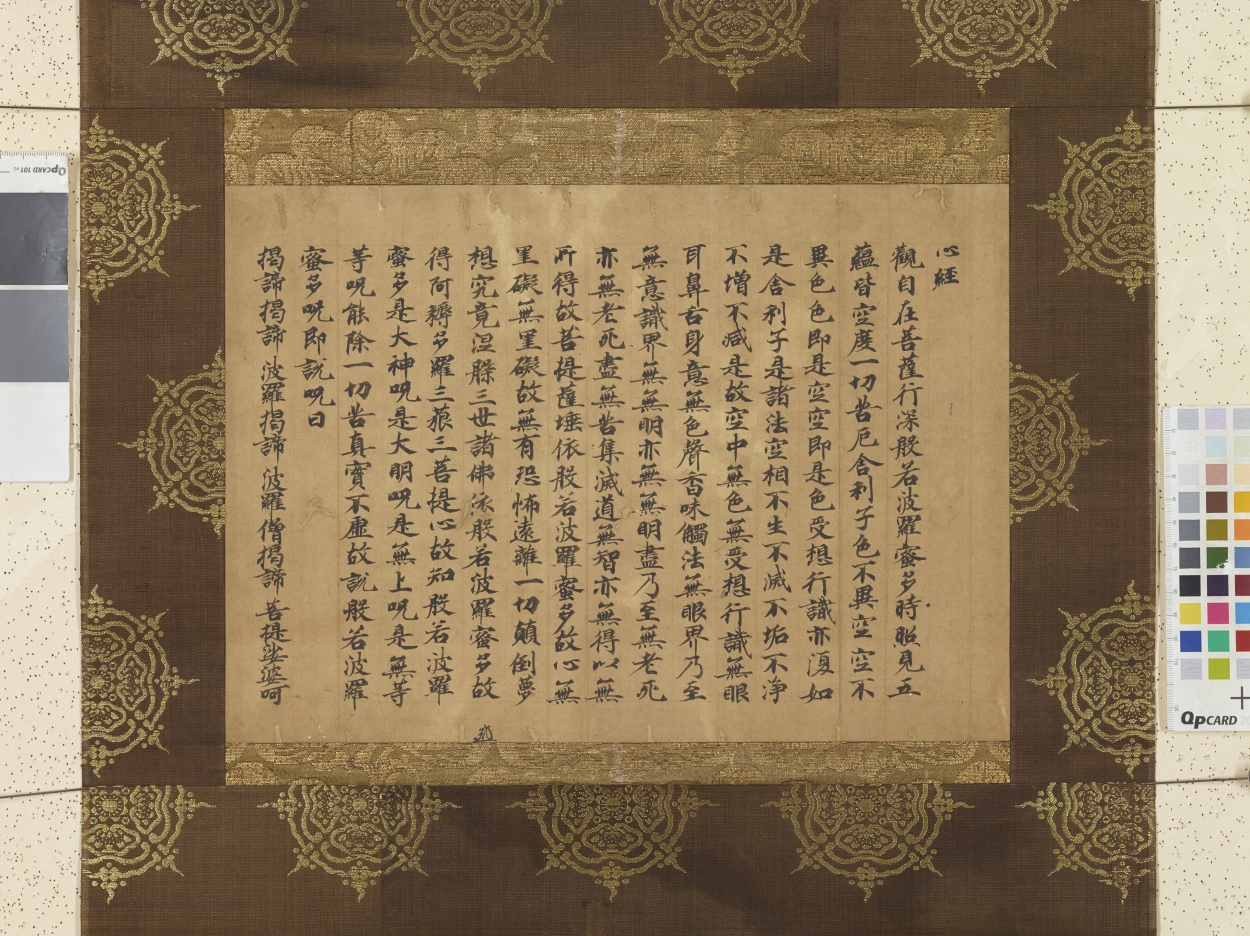 心經
觀自在菩薩行深般若波羅蜜多時照見五
蘊皆空度一切苦厄舍利子色不異空空不
異色色即是空空即是色受想行識亦復如
是舍利子是諸法空相不生不滅不垢不淨
不增不減是故空中無色無受想行識無眼
耳鼻舌身意無色聲香味觸法無眼界乃至
無意識界無無明亦無無明盡乃至無老死
亦無老死盡無苦集滅道無智亦無得以無
所得故菩提薩埵依般若波羅蜜多故心無
罣礙無罣礙故無有恐怖遠離一切顛倒夢
想究竟涅槃三世諸佛依般若波羅蜜多故
得阿耨多羅三藐三菩提心故知般若波羅
蜜多是大神呪是大明呪是無上呪是無等
等呪能除一切苦真實不虛故說般若波羅
蜜多呪即說呪曰
揭諦揭諦 波羅揭諦 波羅僧揭諦 菩提娑婆呵
QPCARD 101 v1
QPCARD